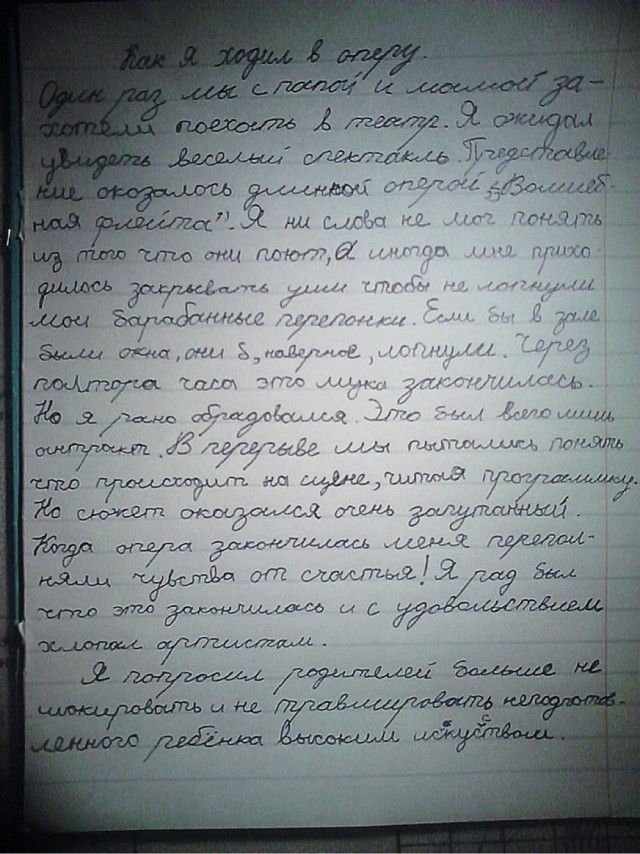 Как я ходил в оперу.
Один раз мы с папой и мамой за-
хотели поехать в театр. Я ожидал
увидеть веселый спектакль. Представле-
ние оказалось длинной оперой „Волшеб-
ная флейта”. Я ни слова не мог понять
из того что они поют, а иногда мне прихо-
дилось закрывать уши чтобы не лопнули
мои барабанные перепонки. Если бы в зале
были окна, они б, наверное, лопнули. Через
полтора часа это мука закончилась.
Но я рано обрадовался. Это был всего лишь
антракт. В перерыве мы пытались понять
что происходит на сцене, читая программку.
Но сюжет оказался очень запутанный.
Когда опера закончилась меня перепол-
няли чувства от счастья! Я рад был
что это закончилась и с удовольствием
хлопал артистам.
Я попросил родителей больше не
шокировать и не травмировать неподготов-
ленного ребёнка высоким искусством.